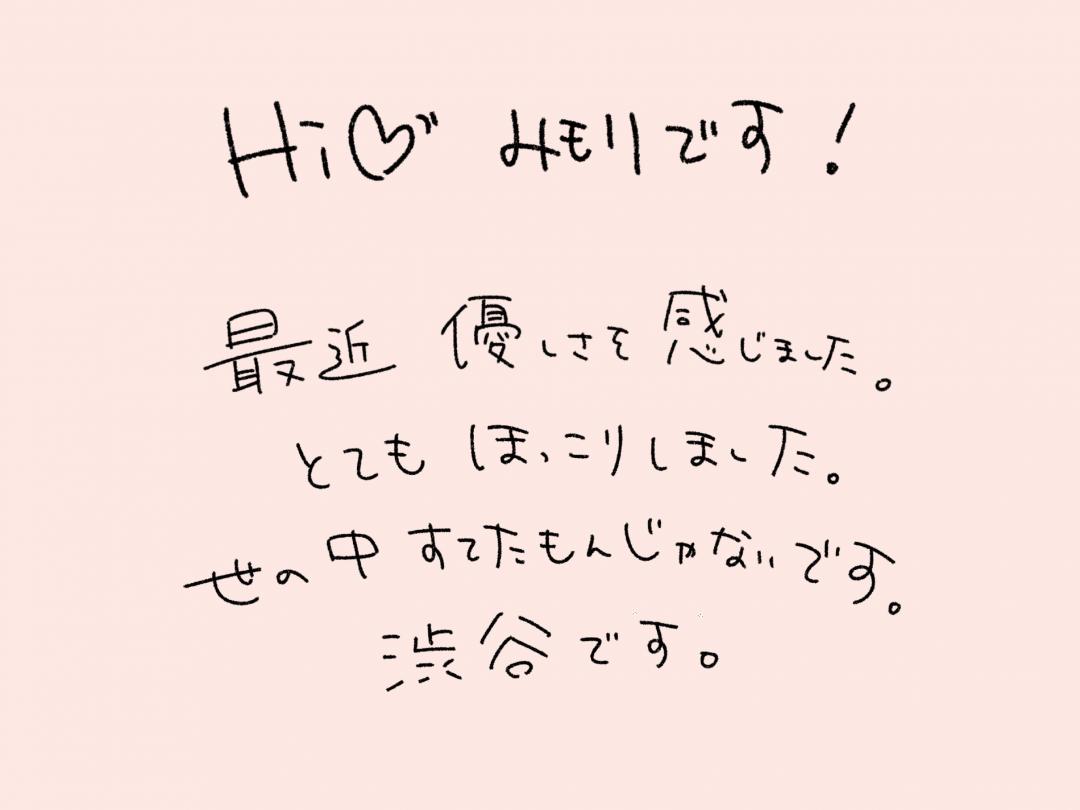 Hi♡ みモリです！
最近 優しさを 感じました。
とても ほっこりしました。
世の中 すてたもんじゃないです。
渋谷です。